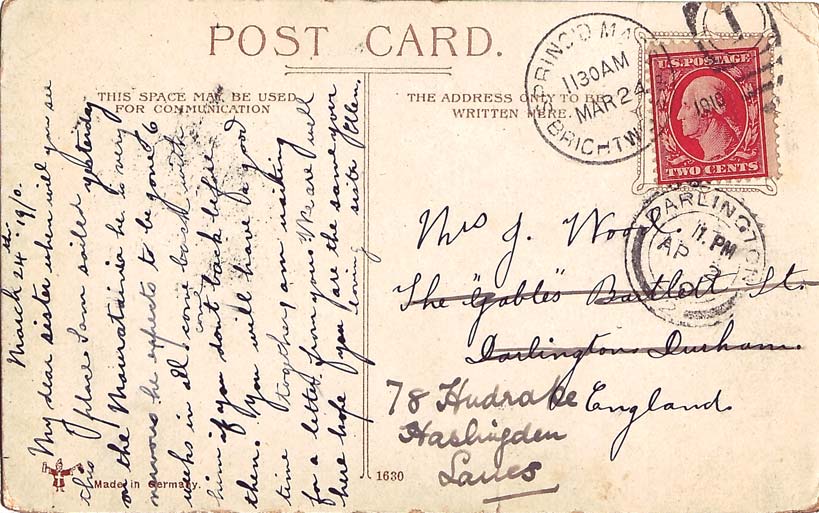 POST CARD.
THIS SPACE MAY BE USED
FOR COMMUNICATION
THE ADDRESS ONLY TO BE
WRITTEN HERE.
March 24th 1910.
My dear sister when will you see
this place Sam sailed yesterday
on the Mauratainia he is very
nervous he expects to be gone 6
weeks in all. come back with
him if you don't back before
then. You will have a good
time together, am waiting
for a letter from yours We are well
here hope you are the same your
loving sister Ellen.
SPRING'D MA
1130AM
MAR 24
1910
BRIGHTW
1
U.S. POSTAGE
TWO CENTS
DARLINGTON
11. PM
AP 2
Mrs J. Wood.
The "Gables" Bartlett St.
Darlington Durham.
England
78 Hudrake
Haslingden
Lancs
Made in Germany.
1630